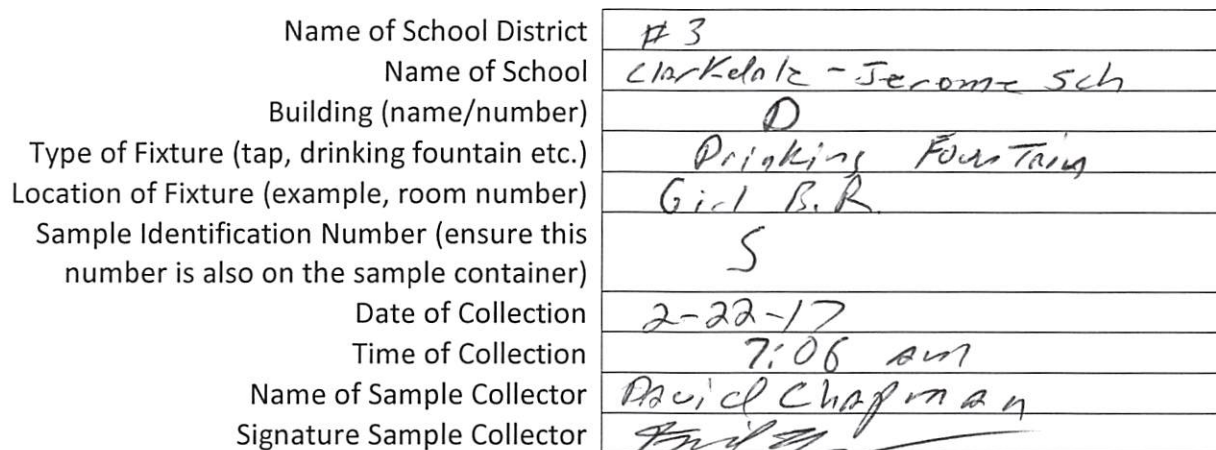 Name of School District # 3
Name of School Clarkdale - Jerome Sch
Building (name/number) D
Type of Fixture (tap, drinking fountain etc.) Drinking Fountain
Location of Fixture (example, room number) Girl B.R.
Sample Identification Number (ensure this
number is also on the sample container) S
Date of Collection 2-22-17
Time of Collection 7:06 am
Name of Sample Collector David Chapman
Signature Sample Collector